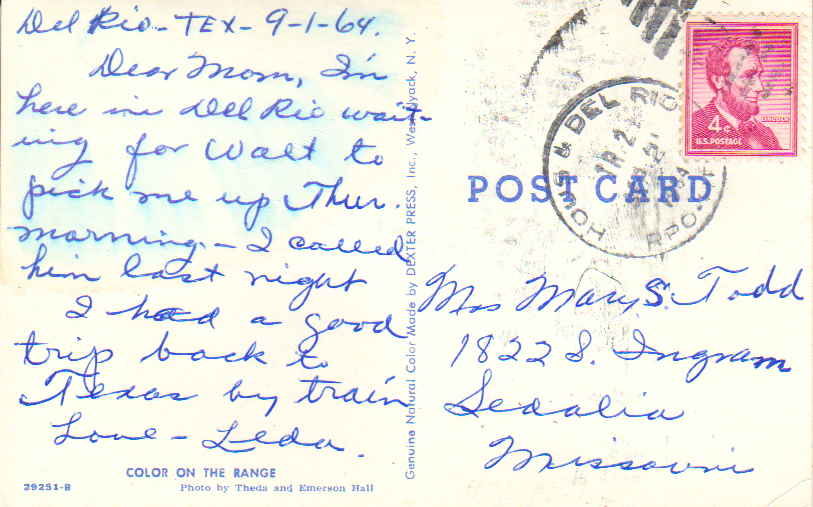 Del Rio-TEX-9-1-64.
Dear Mom, I'm
here in Del Rio wait-
ing for Walt to
pick me up Thur.
morning - I called
him last night
I had a good
trip back to
Texas by train
Love - Leda.
COLOR ON THE RANGE
29251-B
Photo by Theda and Emerson Hall
Genuine Natural Color Made by DEXTER PRESS, Inc., West Nyack, N. Y.
POST CARD
HOUS & DEL RIO
TR. 2
RPO
LINCOLN
4¢
U.S. POSTAGE
Mrs Mary S. Todd
1822 S. Ingram
Sedalia
Missouri